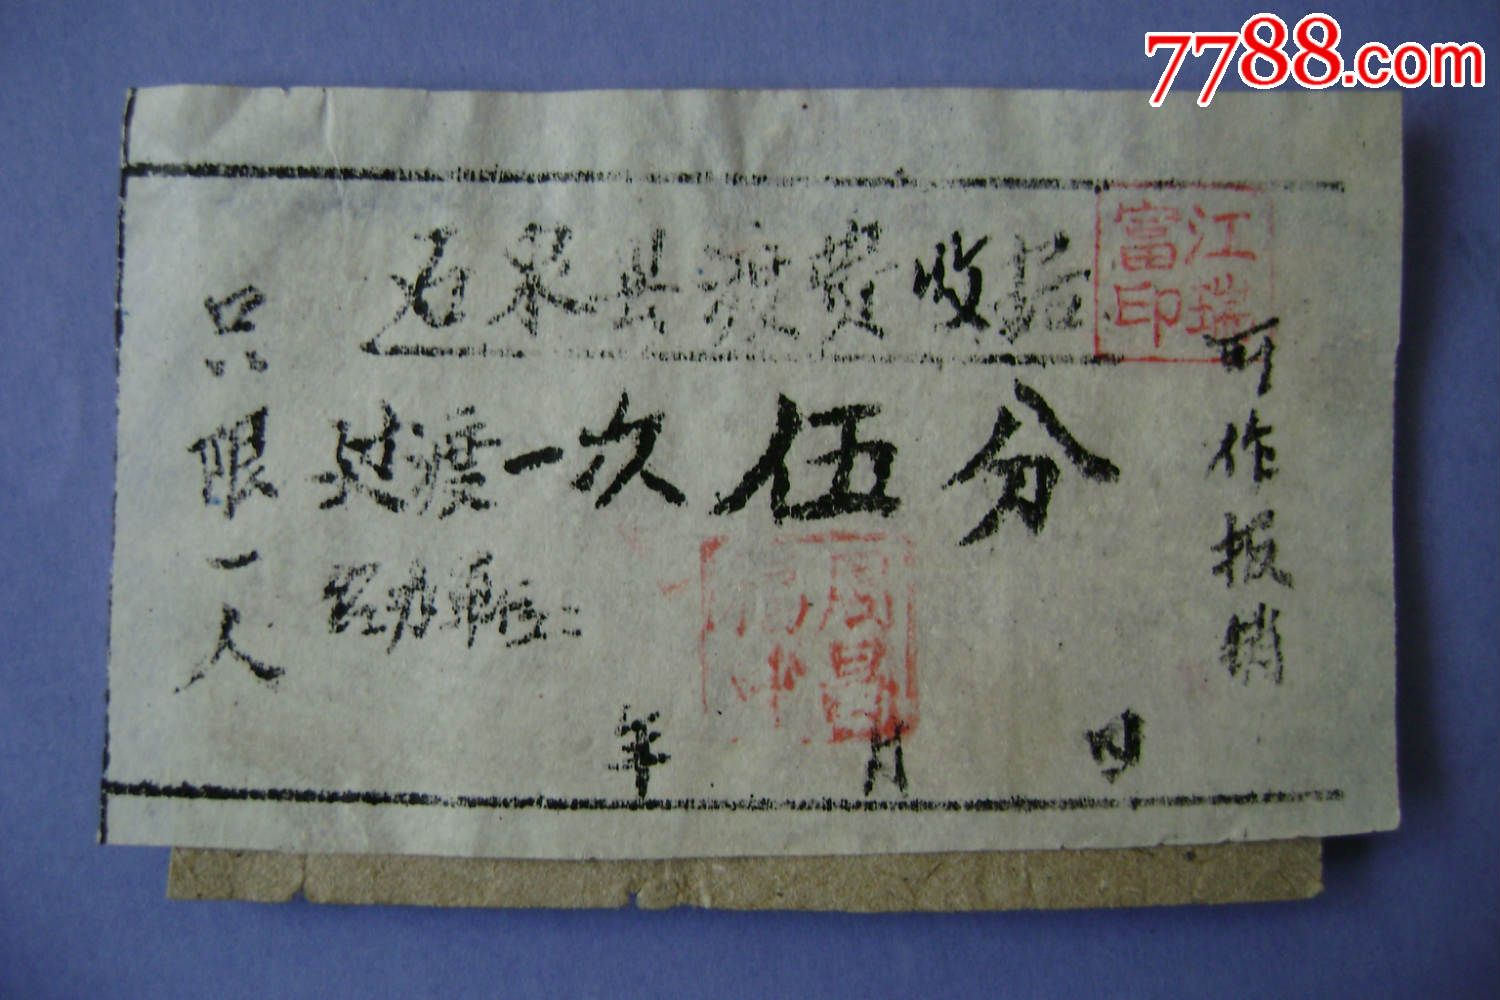 7788.com
石泉县渡费收据
江瑞富印
只限一人
过渡一次伍分
可作报销
周昌
年 月 日